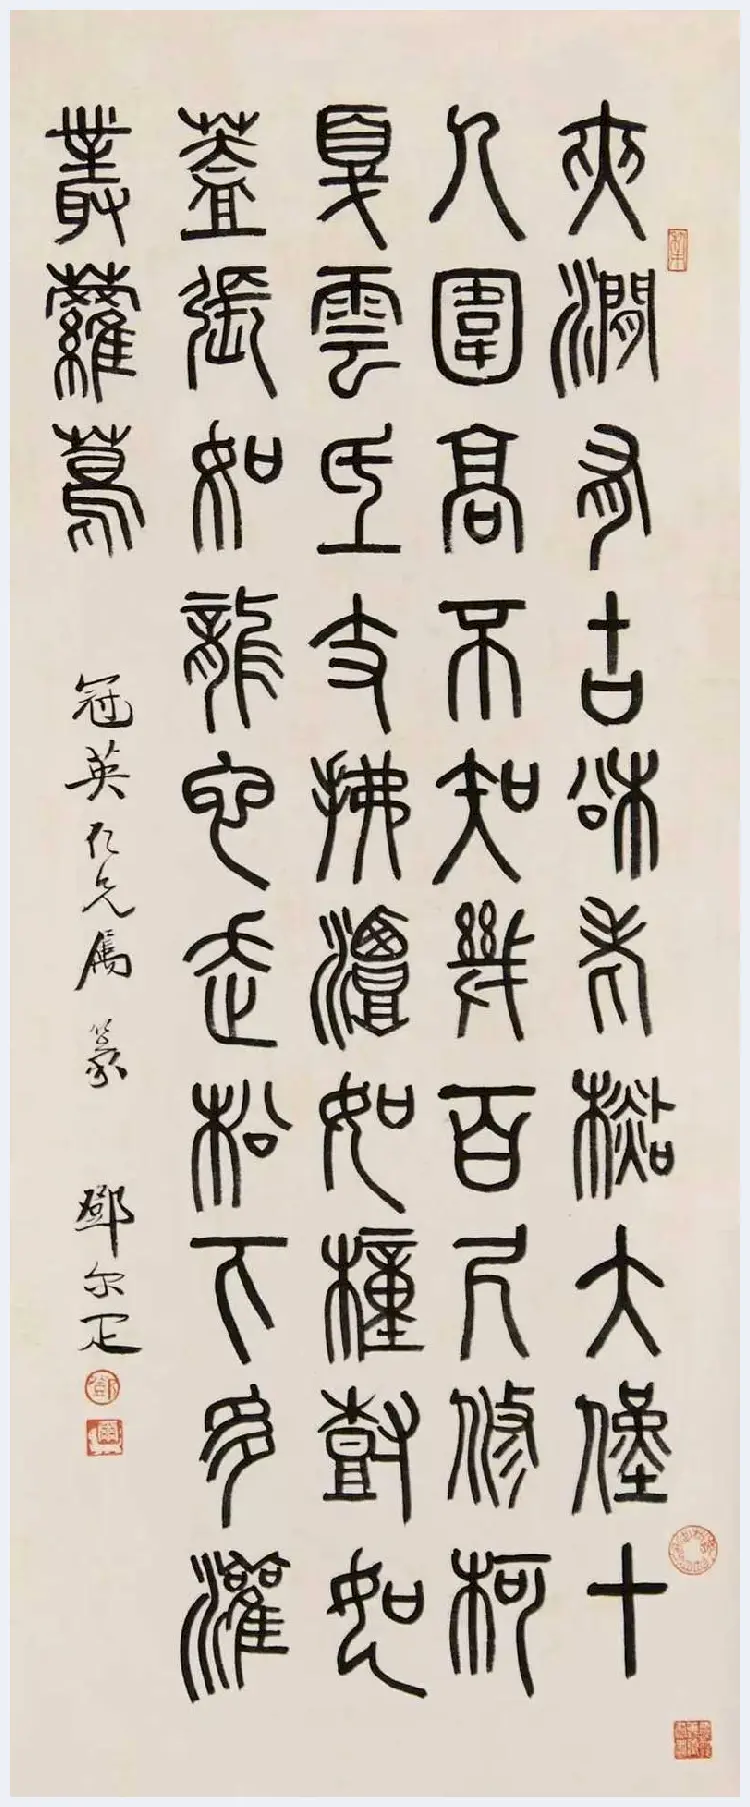 夾澗有古松老杉大僅十
人圍高不知幾百尺修柯
戛雲低枝拂潭如幢豎如
蓋張如龍蛇走松下多灌
叢蘿蔦
冠英仁兄屬篆 鄧尔疋